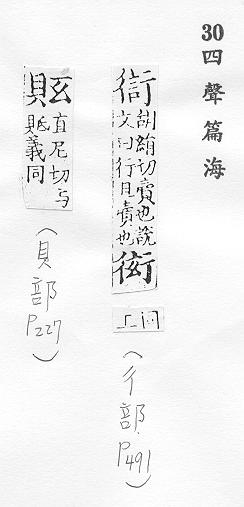 30四聲篇海
胡絹切賣也說
文曰行且賣也
同上
(彳部P491)
直尼切与
貾義同
(貝部P227)